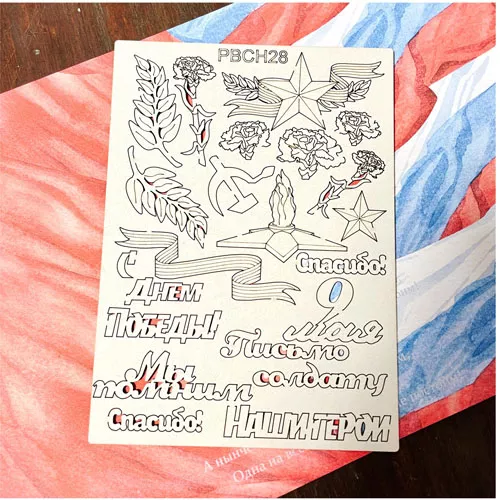 РВСН28
Спасибо!
С
Днем
Победы!
9
мая
Письмо
солдату
Мы
помним
Спасибо!
Наши герои
А нынче
Одна на в